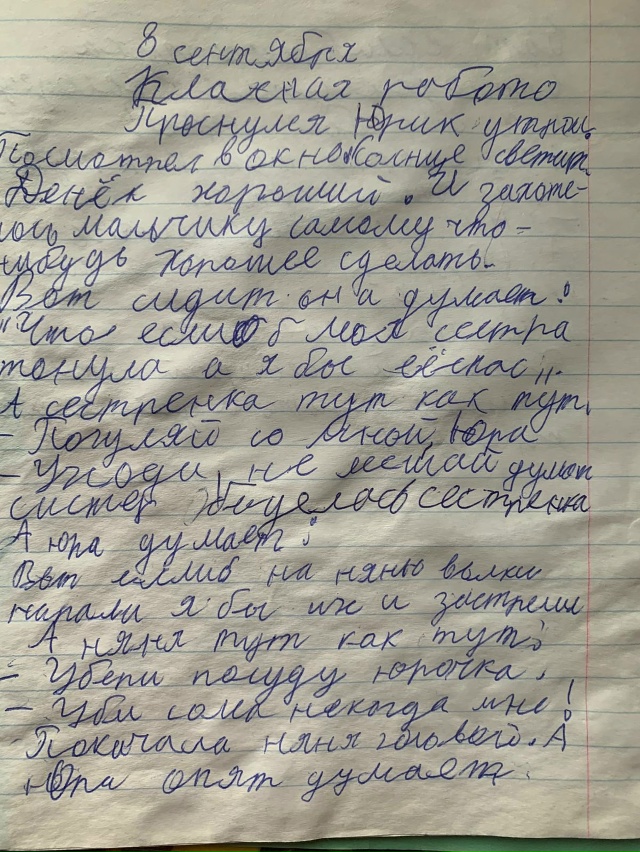 8 сентября
Клахная робото
Проснулся Юрик утром.
Посмотрел в окно. Солнце светит.
Денёк хороший. И захоте-
лось мальчику самому что-
нибудь хорошее сделать.
Вот сидит он а думает:
"Что если б моя сестра
тонула а я бы её спас".
А сестренка тут как тут.
- Погуляй со мной, Юра
- Уходи, не мешай думат
систер Обиделась сестренка
А юра думает:
Вот еслиб на няню валки
нарали я бы их и застрелил
А няня тут как тут:
- Убери посуду юрочка.
- Уби сома некогда мне!
Покачала няня головой. А
Юра опят думает.